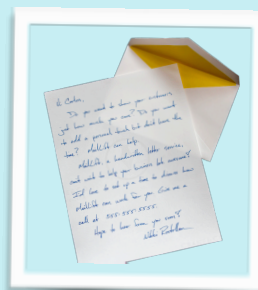 Hi Carton,
Do you want to show your customers
just how much you care? Do you want
to add a personal touch but don't have the
time? MailLift can help.
MailLift, a handwritten letter service,
can work to help your business
I'd love to set up a time to discuss how
MailLift can work for you. Give me a
call at XXX-XXX-XXXX.
Hope to hear from you soon!